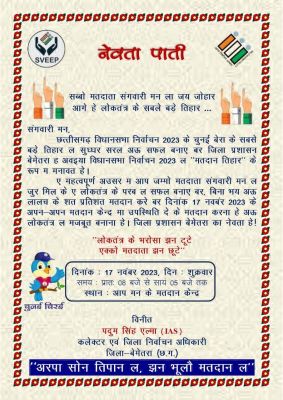 SVEEP
नेवता पाती
सब्बो मतदाता संगवारी मन ला जय जोहार
आगे हे लोकतंत्र के सबले बड़े तिहार ...
संगवारी मन,
छत्तीसगढ़ विधानसभा निर्वाचन 2023 के चुनई बेरा के सबसे
बड़े तिहार ल सुघ्घर सरल अऊ सफल बनाए बर जिला प्रशासन
बेमेतरा ह अवइया विधानसभा निर्वाचन 2023 ल "मतदान तिहार" के
रूप म मनावत हे।
ए महत्वपूर्ण अउसर म आप जम्मो मतदाता संगवारी मन ल
जुर मिल के ए लोकतंत्र के परब ल सफल बनाए बर, बिना भय अऊ
लालच के शत प्रतिशत मतदान करे बर दिनांक 17 नवंबर 2023 के
अपन-अपन मतदान केन्द्र मा उपस्थिति दे के मतदान करना हे अऊ
लोकतंत्र ल मजबूत बनाना हे। जिला प्रशासन बेमेतरा का नेवता हे!
"लोकतंत्र के भरोसा झन टूटे
एक्को मतदाता झन छूटे"
दिनांक : 17 नवंबर 2023, दिन : शुक्रवार
समय : प्रातः 08 बजे से सायं 05 बजे तक
स्थान : आप मन के मतदान केन्द्र
चुनई चिरई
विनीत
पदुम सिंह एल्मा (IAS)
कलेक्टर एवं जिला निर्वाचन अधिकारी
जिला-बेमेतरा (छ.ग.)
"अरपा सोन तिपान ल, झन भूलौ मतदान ल"